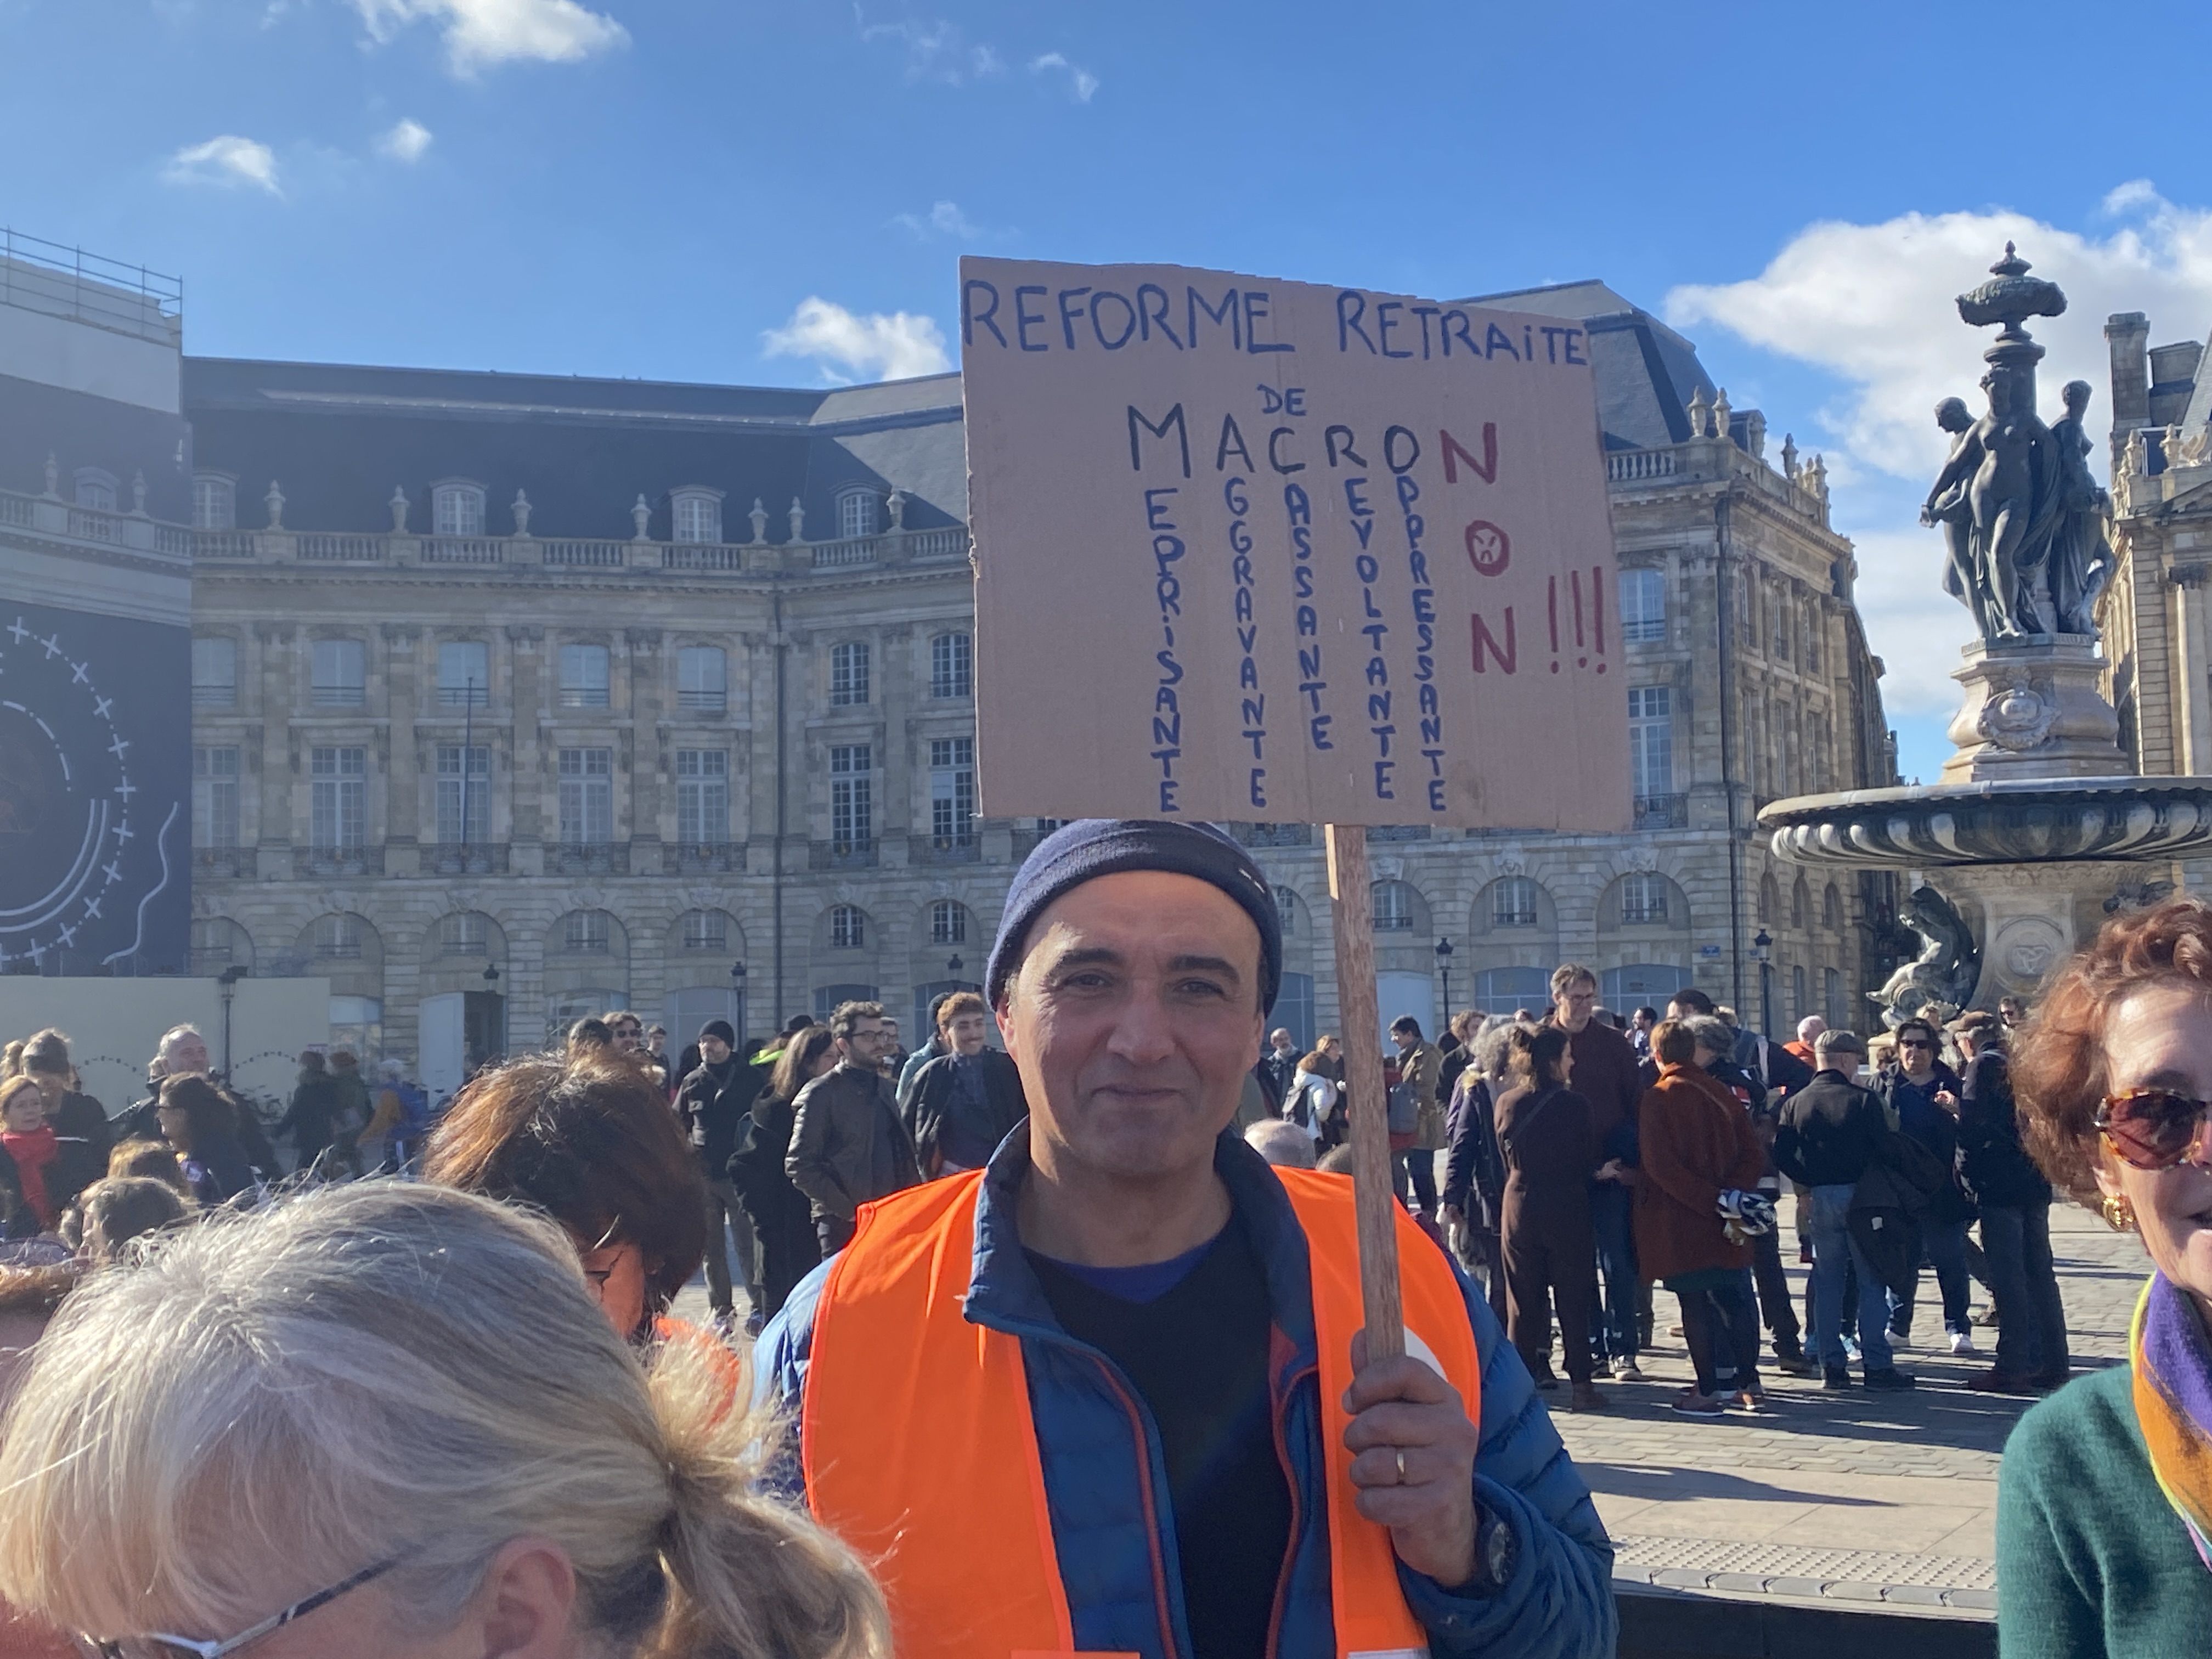 REFORME RETRAiTE
DE
MACRON
MEPRiSANTE
AGGRAVANTE
CASSANTE
REVOLTANTE
OPPRESSANTE
NON !!!